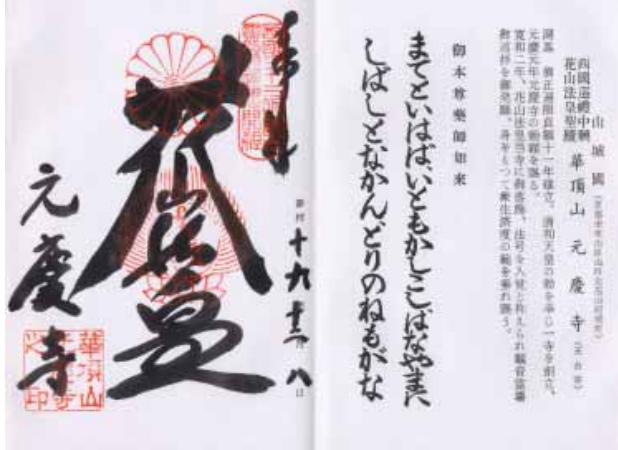 山城國
西國巡禮中興
花山法皇聖蹟 華頂山 元慶寺 (天台宗)
開基 僧正遍照貞観十一年建立。清和天皇の勅を奉じ一寺を創立、
元慶元年元慶寺の勅額を賜る。
寛和二年、花山法皇当寺に御落飾、法号を入覚と称えられ観音霊場
御巡拝を御発願、身をもって衆生済度の範を垂れ賜う。
御本尊薬師如来
まてといはば、いともかしこしばなやまに
しばしとなかんどりのねもがな
奉拝
十九 十二 八日
元慶寺
華頂山